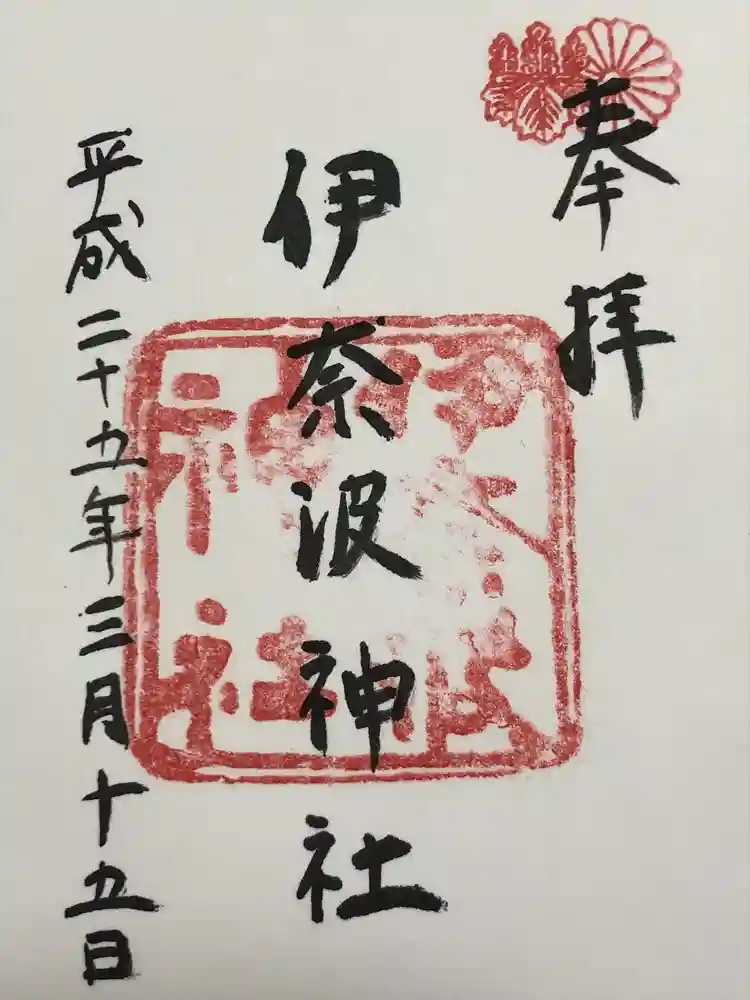 奉拝
伊奈波神社
平成二十五年三月十五日